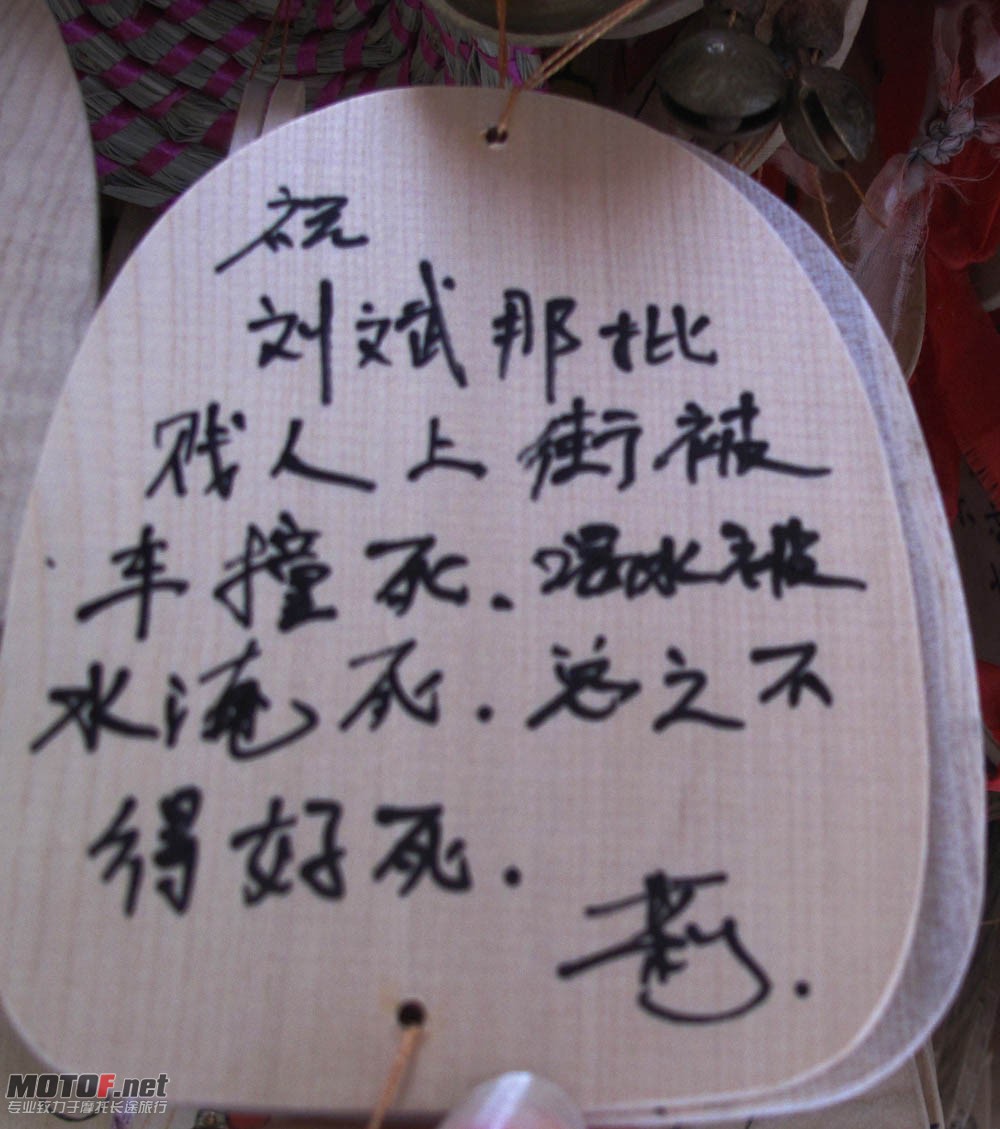 祝
刘斌那批
贱人上街被
车撞死.喝水都被
水淹死.总之不
得好死.
莉.
MOTOF.net
专业致力于摩托长途旅行